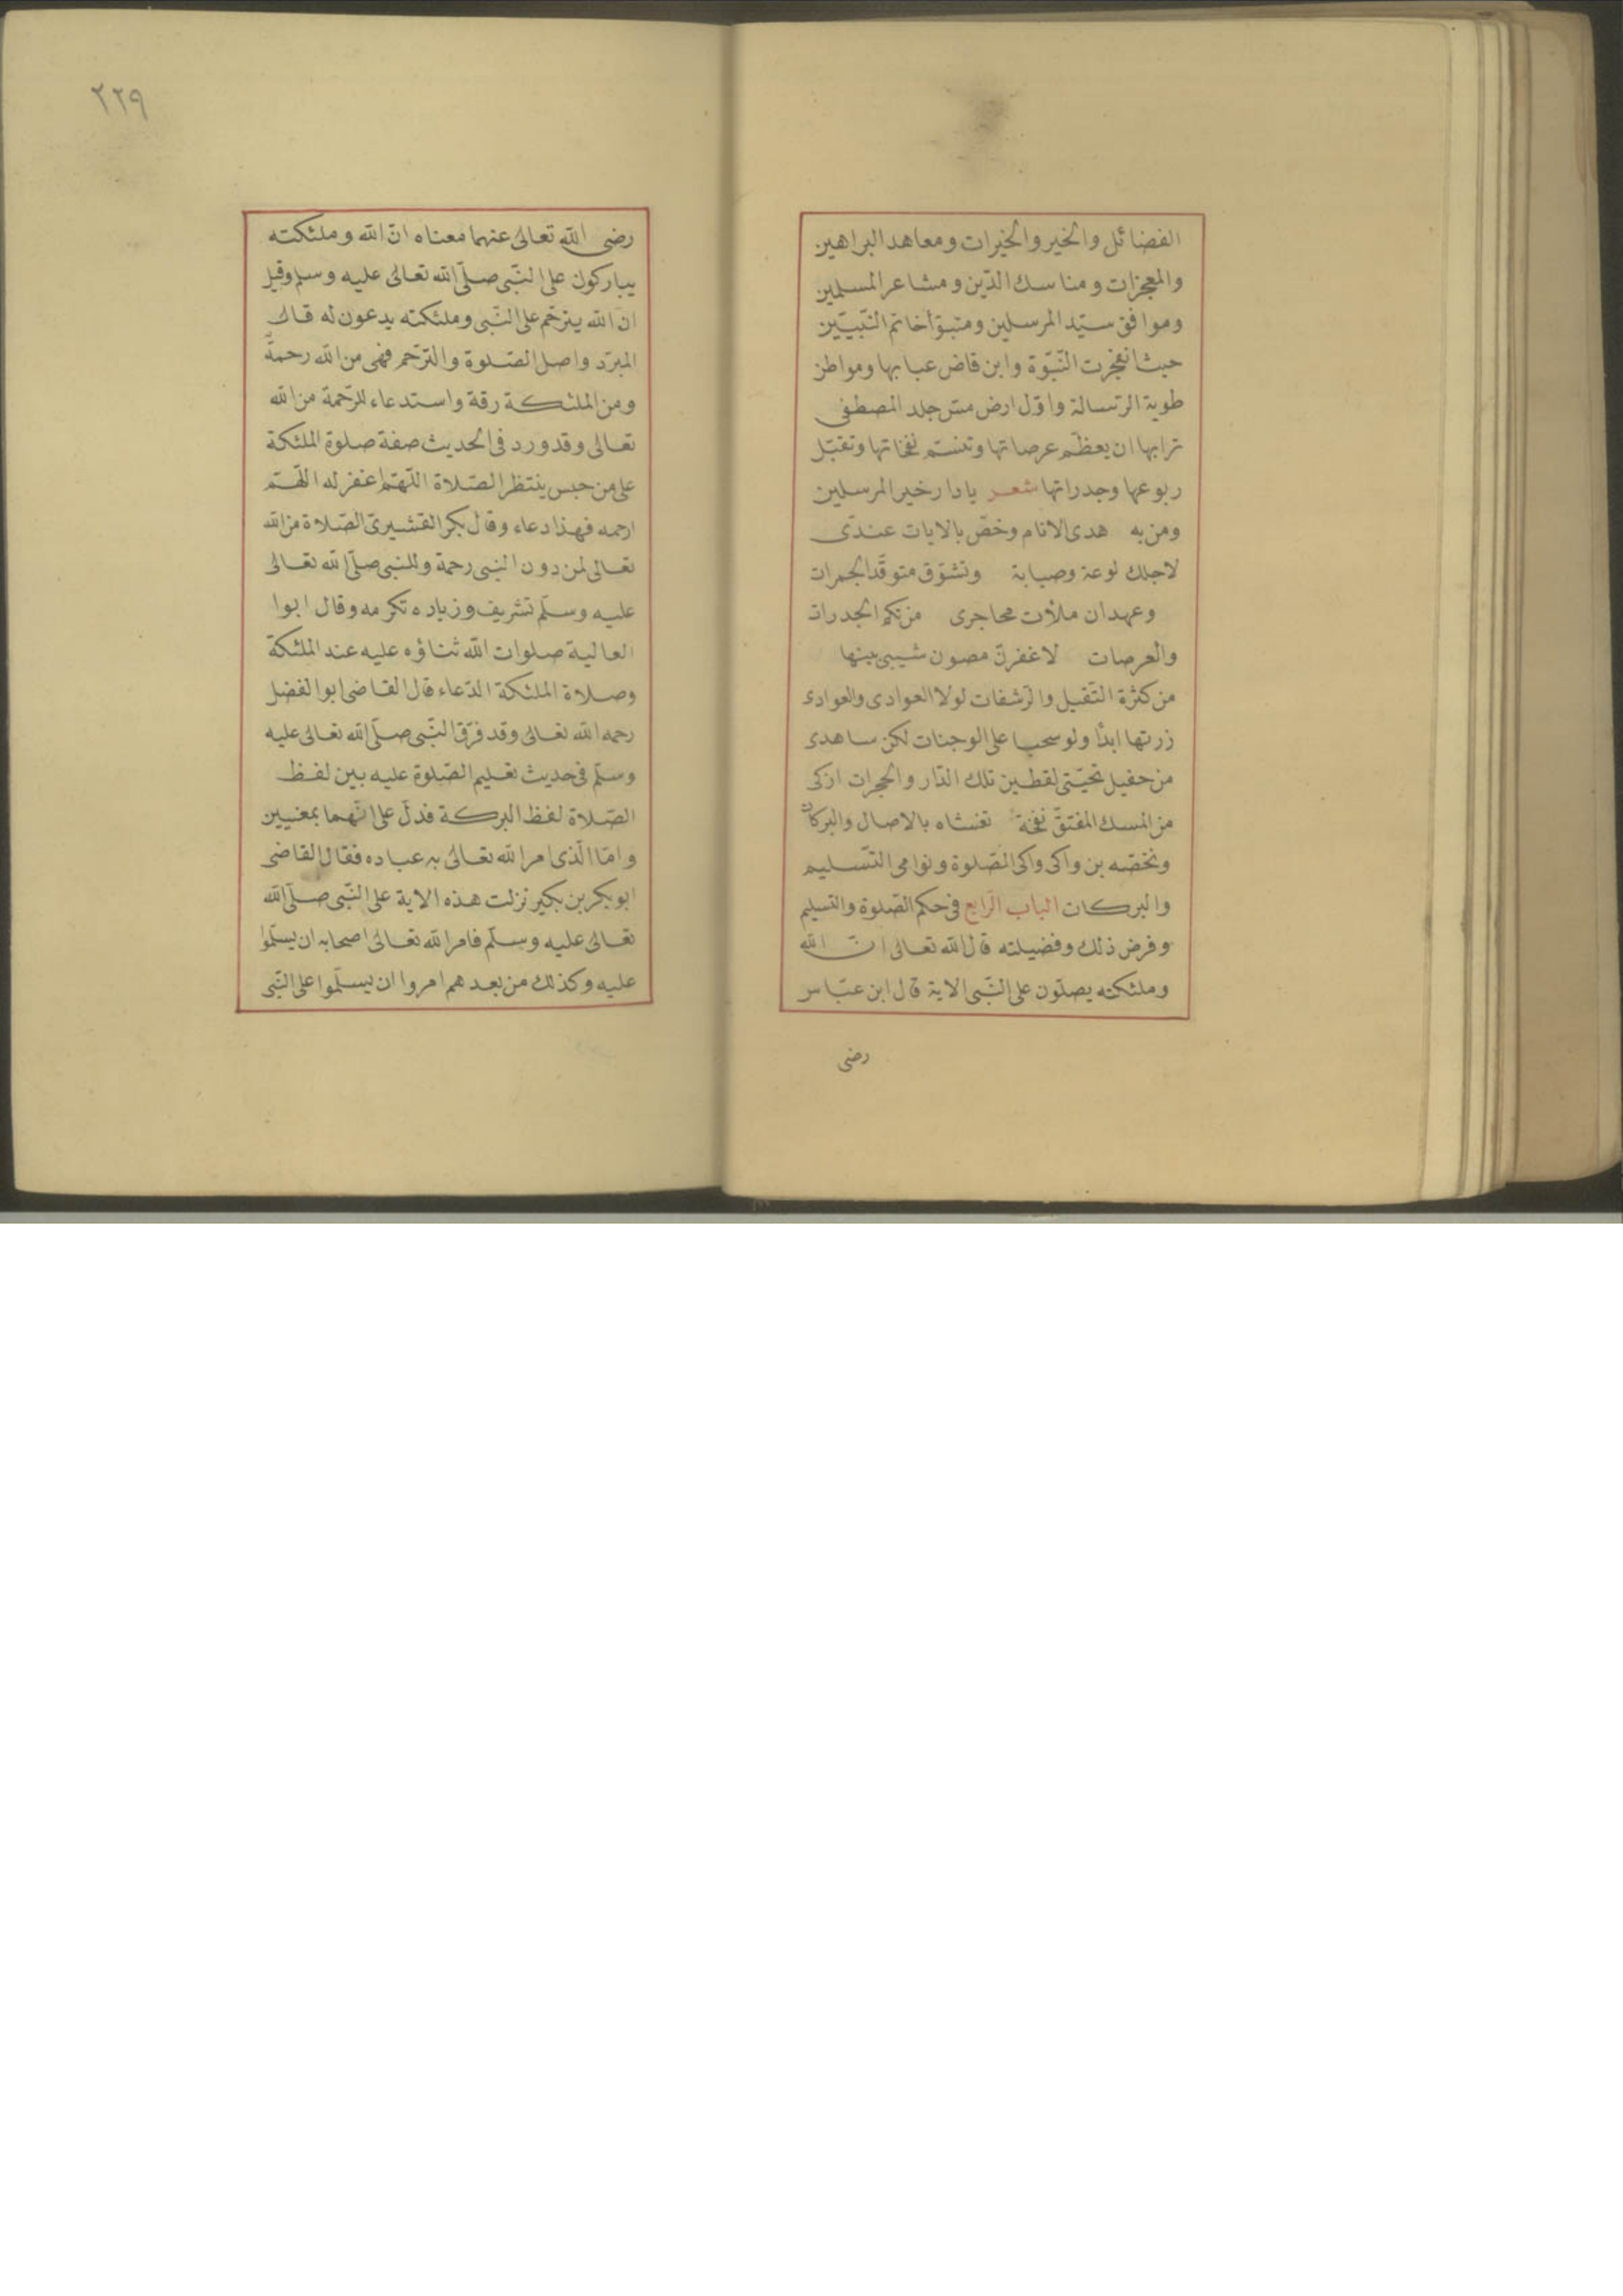 الفضائل والخير والخيرات ومعاهد البراهين
والمعجزات ومناسك الدّين ومشاعر المسلمين
وموافق سيّد المرسلين ومتبوّأ خاتم النّبيّين
حيث انفجرت النّبوّة واين قاض عبابها ومواطن
طوية الرسالة واوّل ارض مسّ جلد المصطفى
ترابها ان يعظّم عرصاتها وتنسّم نفحاتها وتقبّل
ربوعها وجدراتها شعر يا دار خير المرسلين
ومن به هدى الانام وخصّ بالايات عندّى
لاجلك لوعة وصبابة وتشوّق متوقّد الجمرات
وعهد ان ملأت محاجرى من تكم الجدرات
والعرصات لاغفرنّ مصون شيبى بينها
من كثرة التّقبيل والرّشفات لولا العوادى والعوادى
زرتها ابدًا ولو سحبا على الوجنات لكن ساهدى
من حفيل تحيّتى لقطين تلك الدّار والحجرات ازكى
من المسك المفتّق نفحة تغشاه بالاصال والبركات
ونخصّه بن واكى واكى الصّلوة ونوامى التّسليم
والبركات الباب الرّابع فى حكم الصّلوة والتسليم
وفرض ذلك وفضيلته قال الله تعالى انّ الله
وملئكته يصلّون على النّبى الاية قال ابن عبّاس
رضى
٢٢٩
رضى الله تعالى عنهما معناه انّ الله وملئكته
يباركون على النّبى صلّى الله تعالى عليه وسلم وقيل
انّ الله يترحّم على النّبى وملئكته يدعون له قال
المبرّد واصل الصّلوة والترّحّم فهى من الله رحمةً
ومن الملئكة رقة واستدعاء للرّحمة من الله
تعالى وقد ورد فى الحديث صفة صلوة الملئكة
على من جبس ينتظر الصّلاة اللّهمّ اغفر له اللّهمّ
ارحمه فهذا دعاء وقال بكر القشيرىّ الصّلاة من الله
تعالى لمن دون النبى رحمة وللنبى صلّى الله تعالى
عليه وسلّم تشريف وزياده تكرمه وقال ابوا
العالية صلوات الله ثناؤه عليه عند الملئكة
وصلاة الملئكة الدّعاء قال القاضى ابوا لفضل
رحمه الله تعالى وقد فرّق النّبى صلّى الله تعالى عليه
وسلّم فى حديث تعليم الصّلوة عليه بين لفظ
الصّلاة لفظ البركة فدلّ على انّهما بمعنيين
وامّا الّذى امر الله تعالى به عباده فقال القاضى
ابو بكر بن بكير نزلت هذه الاية على النّبى صلّى الله
تعالى عليه وسلّم فامر الله تعالى اصحابه ان يسلّموا
عليه وكذلك من بعد هم امروا ان يسلّموا على النّبى